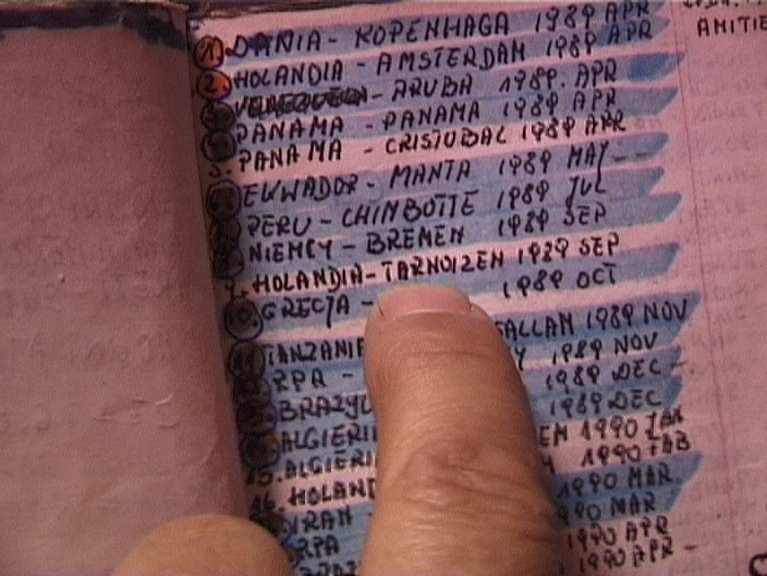 1. DANIA - KOPENHAGA 1989 APR
2. HOLANDIA - AMSTERDAM 1989 APR
- ARUBA 1989. APR
PANAMA - PANAMA 1989 APR
5. PANAMA - CRISTOBAL 1989 APR
EKWADOR - MANTA 1989 MAY
PERU - CHINBOTTE 1989 JUL
NIEMCY - BREMEN 1989 SEP
9. HOLANDIA - TARNOIZEN 1989 SEP
10 GRECJA - 1989 OCT
11 TANZANIE SALLAM 1989 NOV
RPA - Y 1989 NOV
BRAZYL 1989 DEC -
ALGIERI 1989 DEC
15. ALGIERI EM 1990 JAN
16. HOLAND 1990 FAB
IRAN 1990 MAR
RPA 90 MAR
1990 APR
1990 APR -
AMITIE